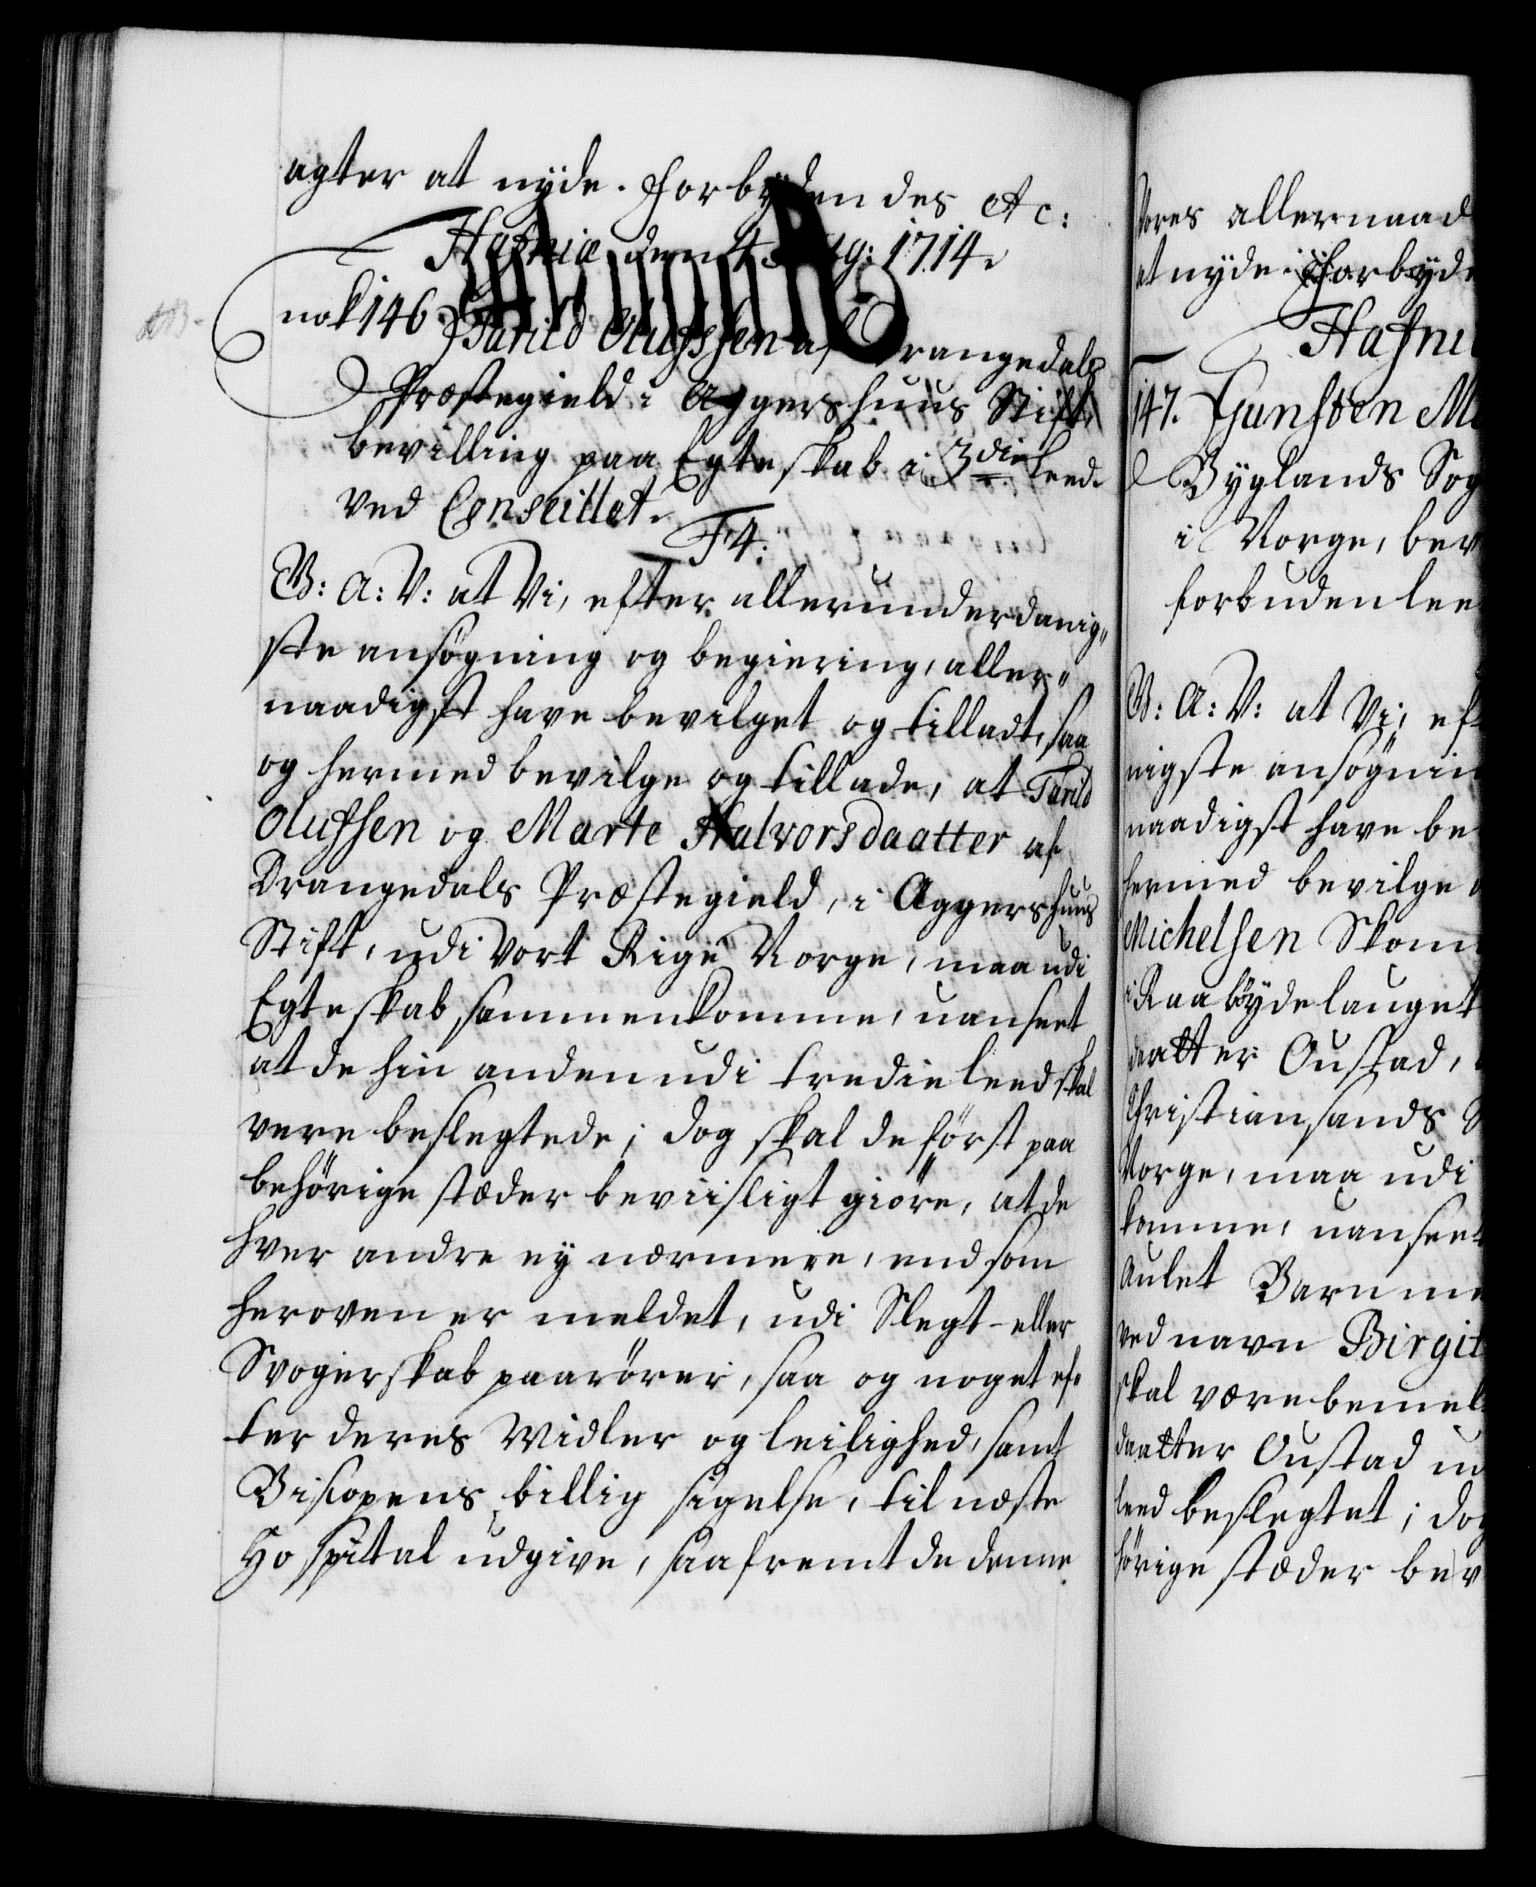 agter at nyde. Forbydendes Etc:
Hafniæ den 4 Aug: 1714.
no 146. Tarild Olufssen af Drangedals
Præstegield i Aggershuus Stift,
bevilling paa Egteskab i 3die leed.
ved Conseillet.
F4.
G: A: V: at Vi, efter allerunderdanig-
ste ansøgning og begiering, aller-
naadigst have bevilget og tilladt, saa
og hermed bevilge og tillade, at Tarild
Olufssen og Marte Halvorsdaatter af
Drangedals Præstegield, i Aggershuus
Stift, udi Vort Rige Norge, maa udi
Egteskab sammenkomme, uanseet
at de hin anden udi tredie leed skal
være beslegtede; dog skal de først paa
behörige stæder beviisligt giöre, at de
hver andre ey nærmere, end som
heroven er meldet, udi Slegt- eller
Svogerskab paarörer, saa og noget ef-
ter deres Midler og leilighed, samt
Biscopens billig sigelse, til næste
Hospital udgive, saafremt de denne
Vores allernaad
at nyde. Forbyde
Hafni
147. Gunsten M
Byglands Sog
i Norge, bev
forbuden lee
G: A: V: at Vi, eft
nigste ansøgnin
naadigst have be
hermed bevilge
Michelsen Skom
i Raabøydelauget
daatter Oustad,
Christiansands S
Norge, maa udi
komme, uanseet
aulet Barn me
ved navn Birgit
skal være bemel
daatter Oustad ud
leed beslegtet; dog
hörige stæder bev